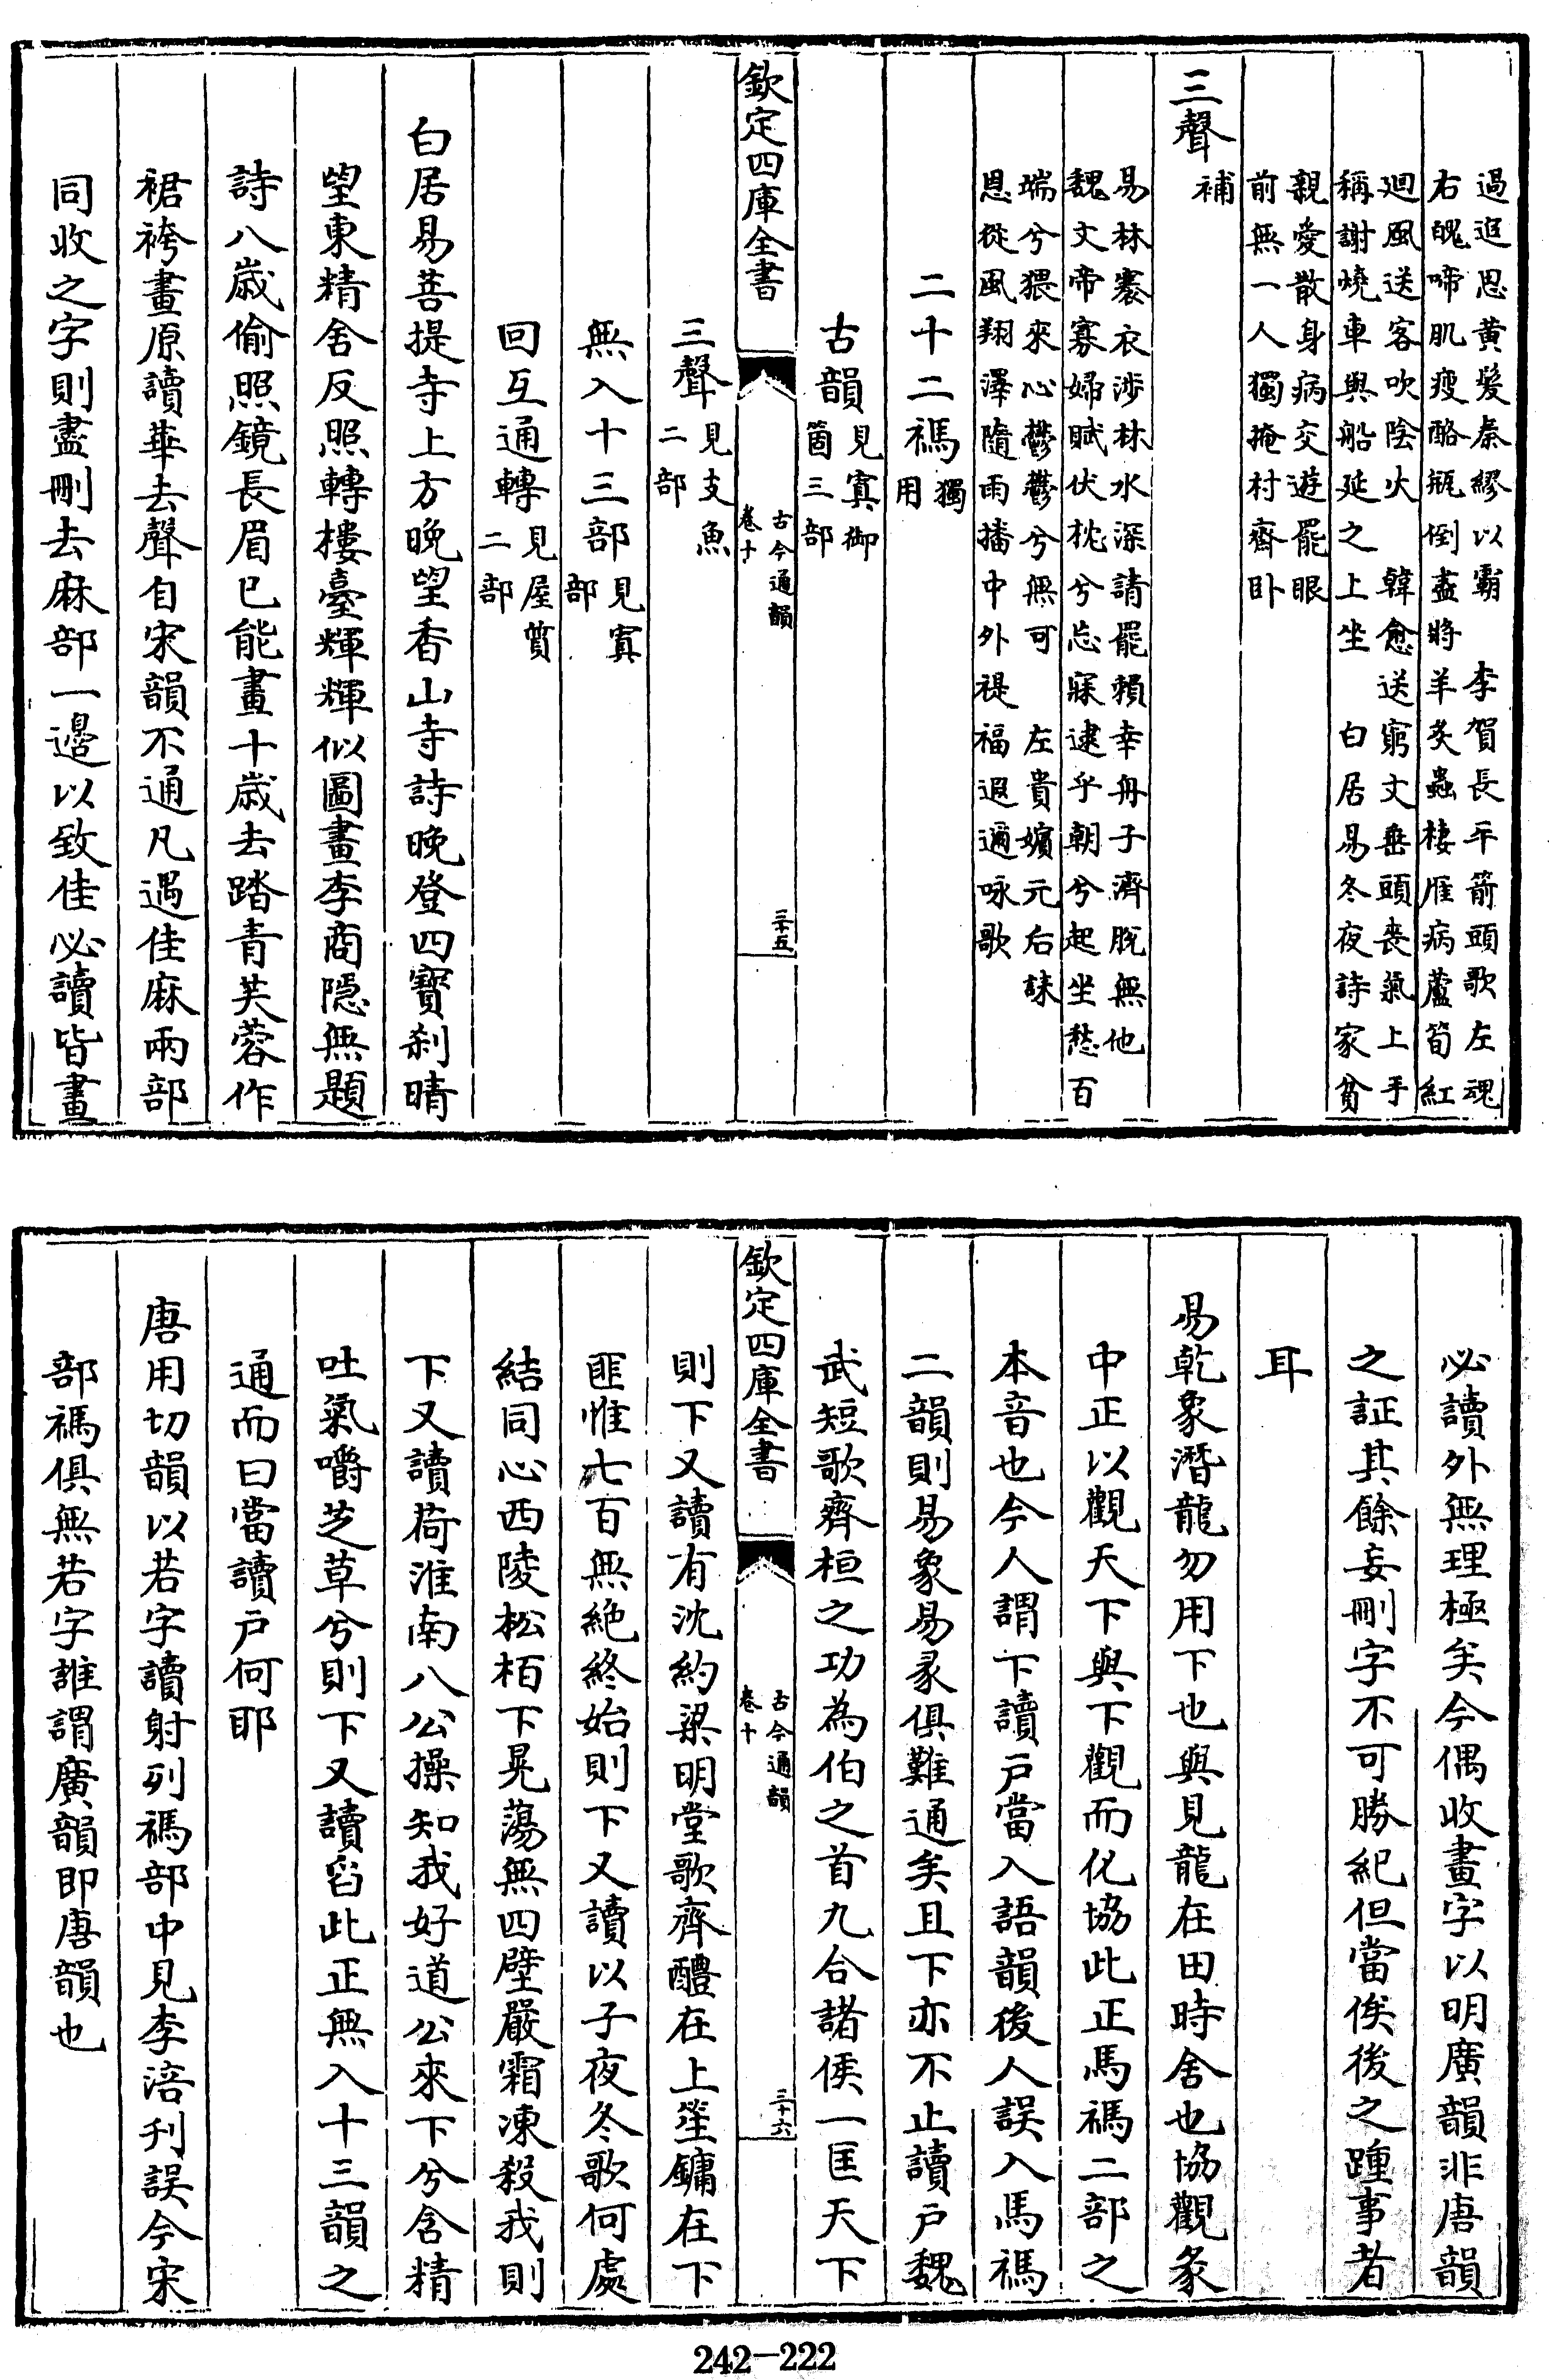 過遐思黃髮秦繆以霸　李賀長平箭頭歌左魂
右䰟啼肌瘦酪瓶倒盡將羊炙蟲棲雁病蘆筍紅
廻風送客吹陰火　韓愈送窮文垂頭喪氣上手
稱謝燒車與船延之上坐　白居易冬夜詩家貧
親愛散身病交遊罷眼
前無一人獨掩村齋卧
三聲補
易林褰衣涉林水深請罷賴幸舟子濟脫無他
魏文帝寡婦賦伏枕兮忘寐逮乎朝兮起坐愁百
瑞兮猥來心鬱鬱兮無可　左貴嬪元后誄
恩從風翔澤隨雨播中外禔福遐邇咏歌
二十二禡獨用
古韻見寘御箇三部
欽定四庫全書
古今通韻
卷十
三十五
三聲見支魚二部
無入十三部見寘部
回互通轉見屋質二部
白居易菩提寺上方晚望香山寺詩晚登四寶刹晴
望東精舍反照轉樓臺輝輝似圖畫李商隱無題
詩八歲偷照鏡長眉已能畫十歲去踏青芙蓉作
裙袴畫原讀華去聲自宋韻不通凡遇佳麻兩部
同收之字則盡刪去麻部一邊以致佳必讀皆畫
必讀外無理極矣今偶收畫字以明廣韻非唐韻
之証其餘妄刪字不可勝紀但當俟後之踵事者
耳
易乾象潛龍勿用下也與見龍在田時舍也協觀彖
中正以觀天下與下觀而化協此正馬禡二部之
本音也今人謂下讀戶當入語韻後人誤入馬禡
二韻則易象易彖俱難通矣且下亦不止讀戶魏
武短歌齊桓之功為伯之首九合諸侯一匡天下
欽定四庫全書
古今通韻
卷十
三十六
則下又讀有沈約梁明堂歌齊醴在上笙鏞在下
匪惟七百無絕終始則下又讀以子夜冬歌何處
結同心西陵松栢下晃蕩無四壁嚴霜凍殺我則
下又讀荷淮南八公操知我好道公來下兮含精
吐氣嚼芝草兮則下又讀舀此正無入十三韻之
通而曰當讀戶何耶
唐用切韻以若字讀射列禡部中見李涪刋誤今宋
部禡俱無若字誰謂廣韻即唐韻也
242-222